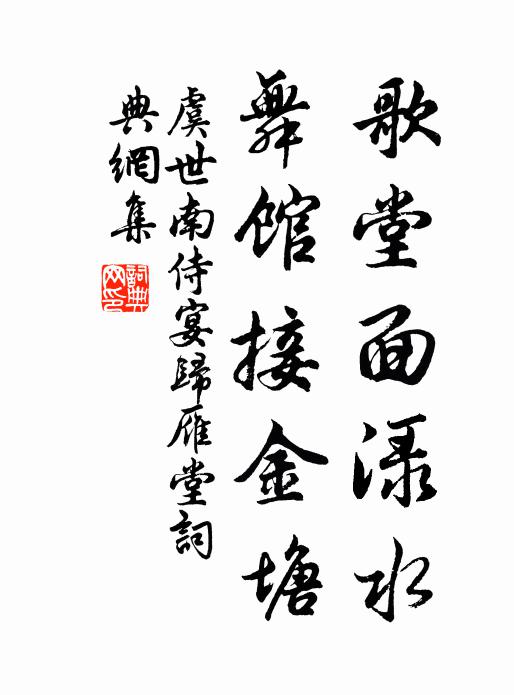 歌堂面渌水
舞馆接金塘
虞世南侍宴歸雁堂詞
典網集
詞典網印